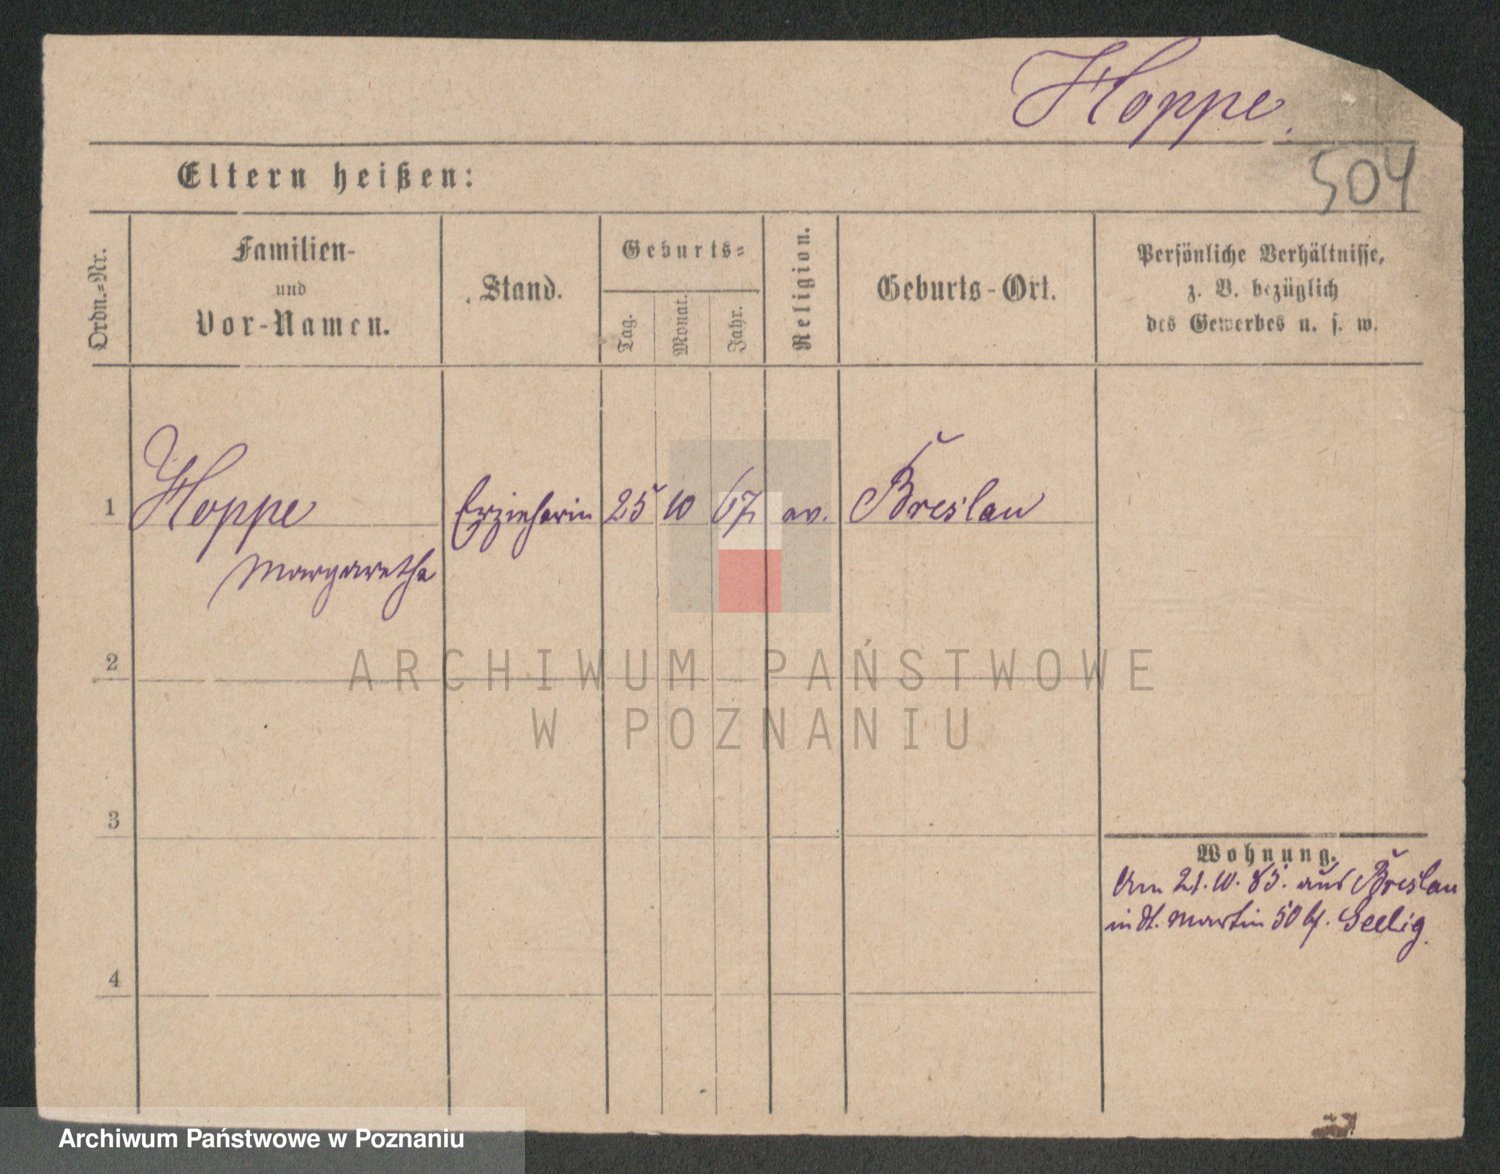 Hoppe.
504
Eltern heißen:
Ordn.-Nr.
Familien-
und
Vor-Namen.
Stand.
Geburts-
Tag.
Monat.
Jahr.
Religion.
Geburts-Ort.
Persönliche Verhältnisse,
z. B. bezüglich
des Gewerbes u. s. w.
1 Hoppe Erzieherin 25 10 67 ev. Breslau
Margarethe
2
ARCHIWUM PAŃSTWOWE
W POZNANIU
3
Wohnung.
Am 21.10.85. aus Breslau
in St. Martin 50 Seelig.
4
Archiwum Państwowe w Poznaniu